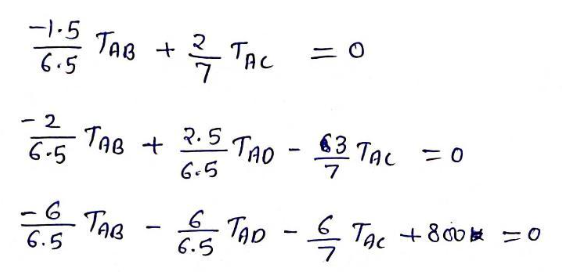 -1.5/6.5 T_AB + 2/7 T_AC = 0
-2/6.5 T_AB + 2.5/6.5 T_AD - 3/7 T_AC = 0
-6/6.5 T_AB - 6/6.5 T_AD - 6/7 T_AC + 800 = 0